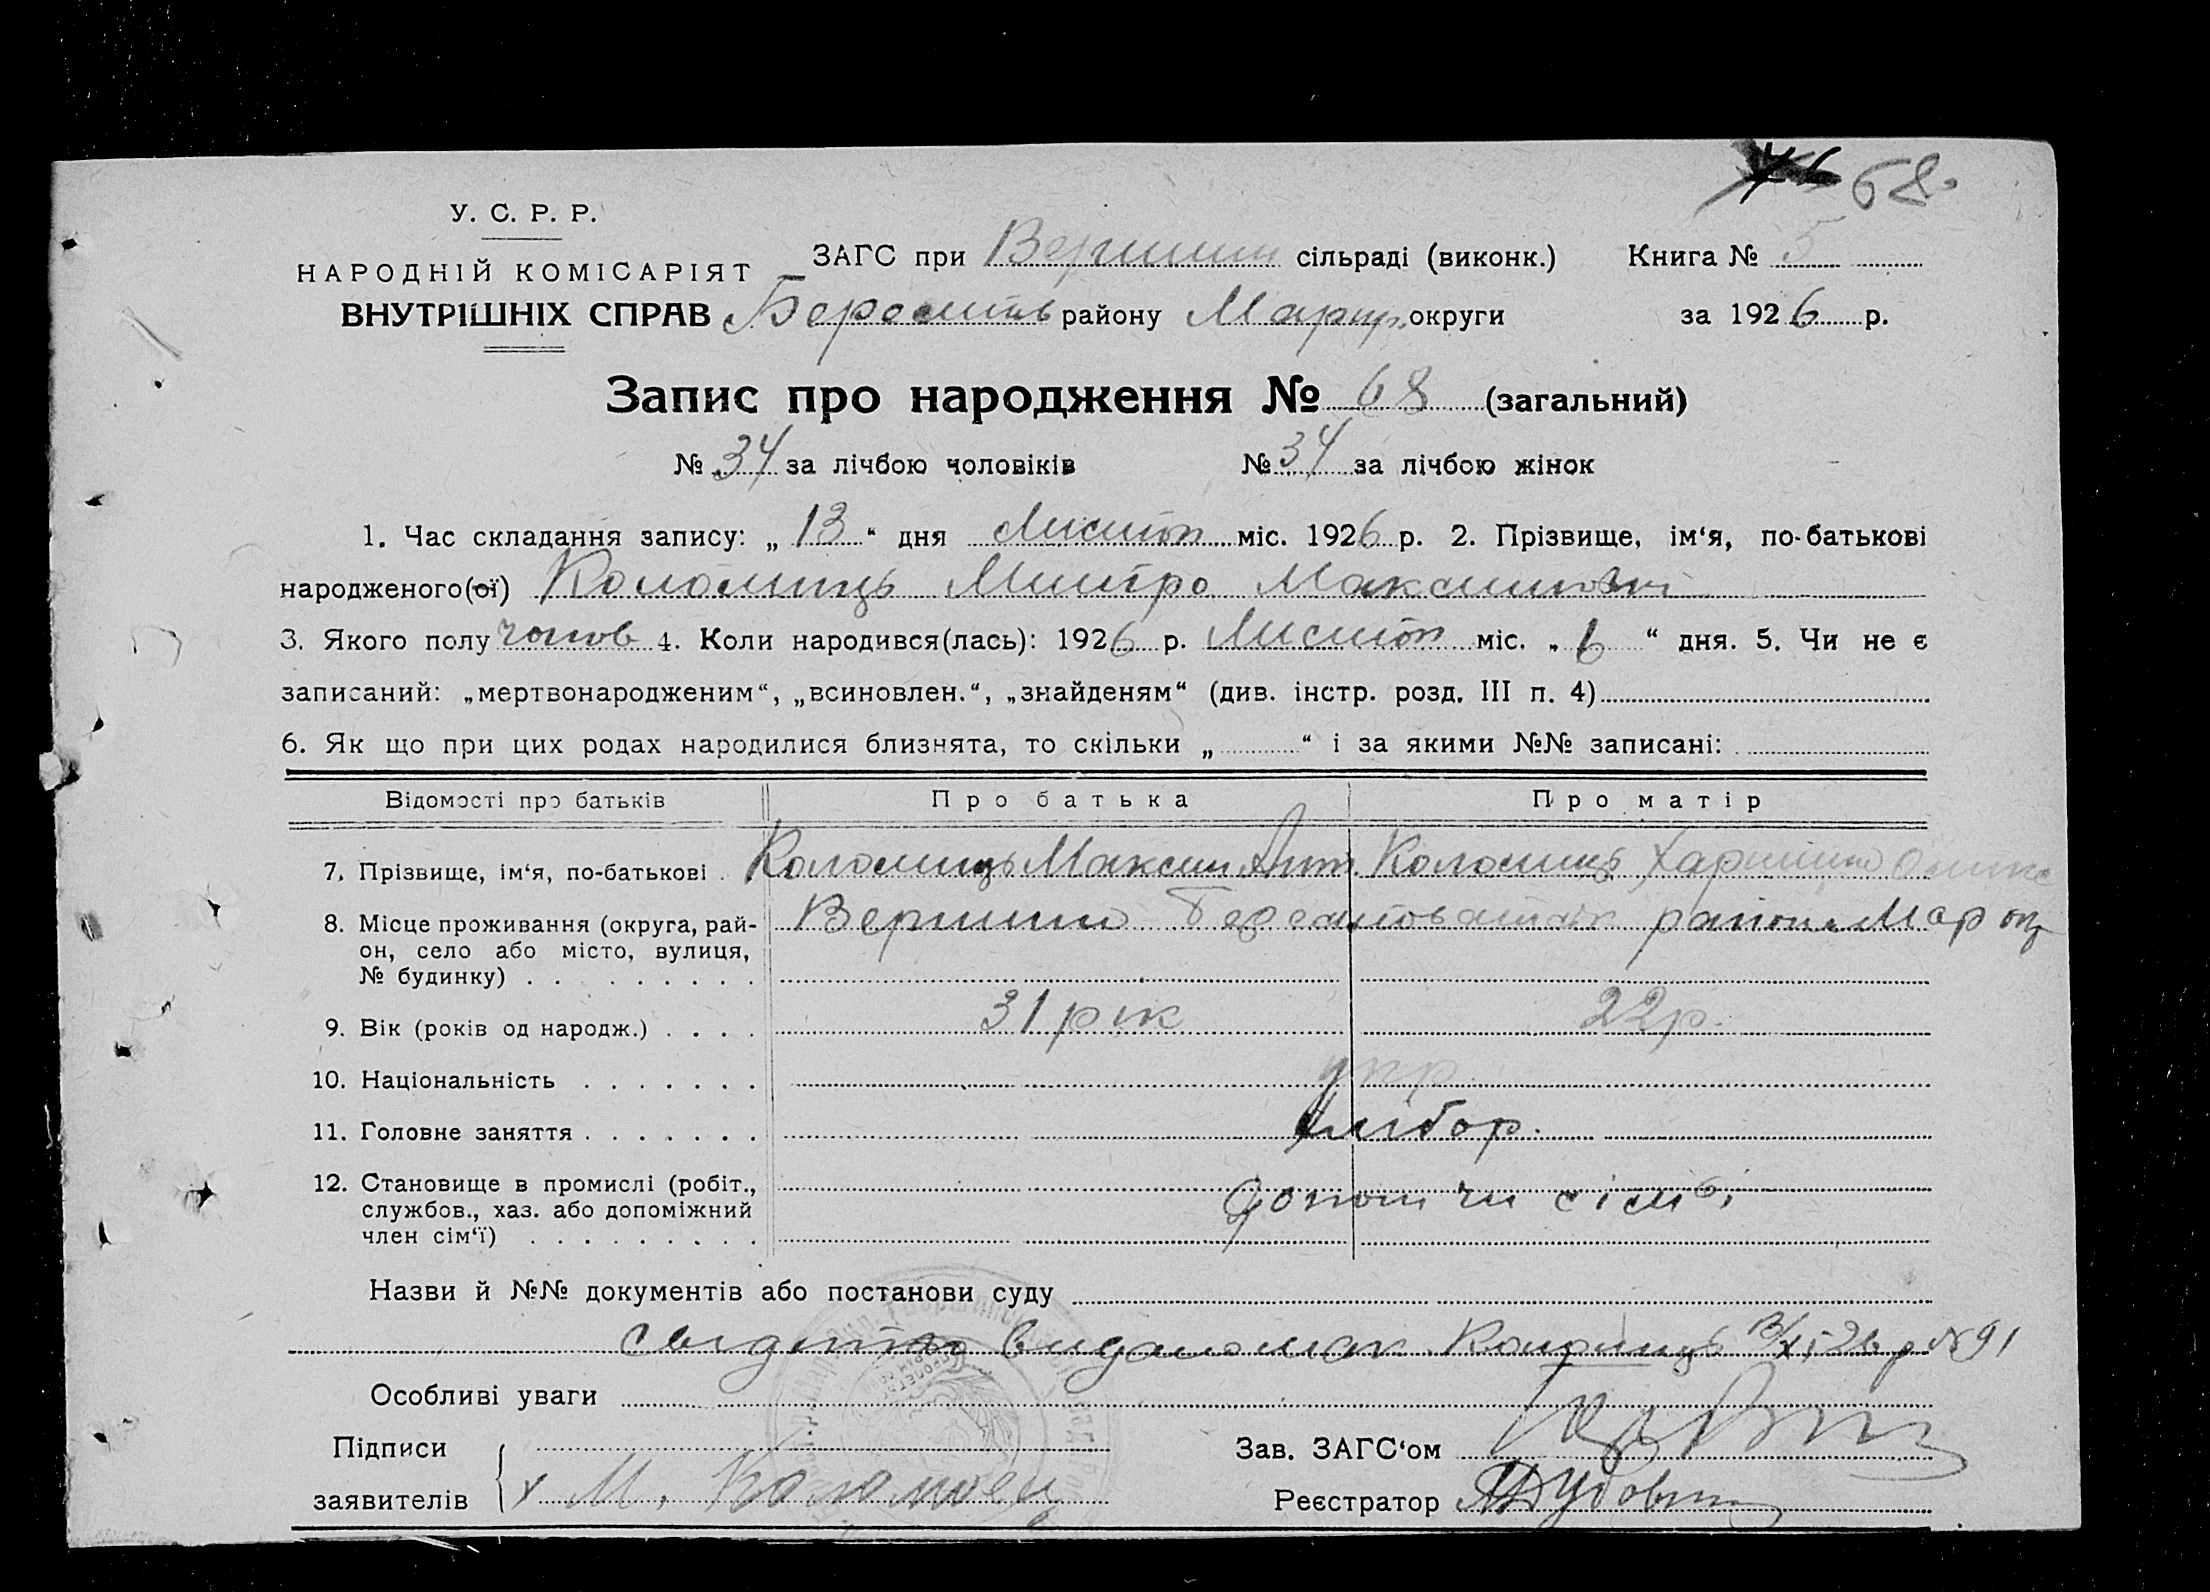 68.
У. С. Р. Р.
НАРОДНІЙ КОМІСАРІЯТ
ВНУТРІШНІХ СПРАВ
ЗАГС при Вершин сільраді (виконк.) Книга № 5
району Марюп. округи за 1926 р.
Запис про народження № 68 (загальний)
№ 34 за лічбою чоловіків № 34 за лічбою жінок
1. Час складання запису: „ 13 “ дня Листоп міс. 1926 р. 2. Прізвище, ім‘я, по-батькові
народженого(ої) Коломиць Митро Максимович
3. Якого полу чолов 4. Коли народився(лась): 1926 р. Листоп міс. „ 6 “ дня. 5. Чи не є
записаний: „мертвонародженим“, „всиновлен.“, „знайденям“ (див. інстр. розд. III п. 4)
6. Як що при цих родах народилися близнята, то скільки „ “ і за якими №№ записані:
Відомості про батьків Про батька Про матір
7. Прізвище, ім‘я, по-батькові . Коломиць Максим Ант. Коломиць
8. Місце проживання (округа, рай- Вершино району Мар окр
он, село або місто, вулиця,
№ будинку) . . . . . . . . .
9. Вік (років од народж.) . . . . 31 рік 22 р.
10. Національність . . . . . . . укр.
11. Головне заняття . . . . . . . хлібор.
12. Становище в промислі (робіт.,
службов., хаз. або допоміжний допом чл сімʼї
член сім‘ї) . . . . . . . . .
Назви й №№ документів або постанови суду
видано мак. Коломиць 13/XI 26 р № 91
Особливі уваги
Підписи
заявителів М. Коломоец
Зав. ЗАГС‘ом
Реєстратор